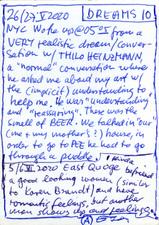 26/27/I/2020 DREAMS 10
NYC Woke up @05 from a
VERY realistic dream/conver-
sation w/ PHILO HEINZMANN
a "normal" conversation where
he asked me about my art w/
the (implicit) understanding to
help me. He was "understanding"
and "reassuring". There was the
smell of BEER. We talked in our
(me & my mother's?) house, in
order to go to PEE he had to go
through a puddle.
5/6/II/2020 East Quogue I befriended
a good looking woman (similar
to Loren Brandt) and have
romantic feelings, but another
man shows up and